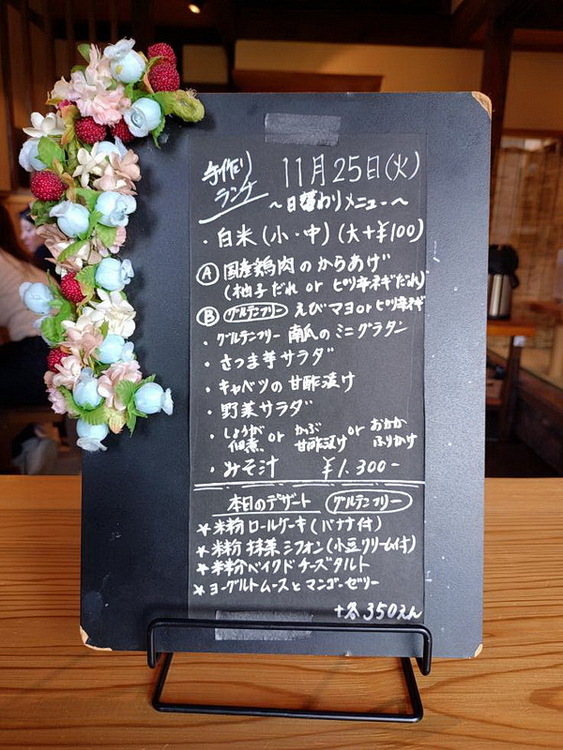 手作り
ランチ
11月25日(火)
〜日替わりメニュー〜
・白米(小・中)(大+¥100)
Ⓐ国産鶏肉のからあげ
(柚子だれ or ピリ辛ネギだれ)
Ⓑグルテンフリー えびマヨorピリ辛ネギ
・グルテンフリー 南瓜のミニグラタン
・さつま芋サラダ
・キャベツの甘酢漬け
・野菜サラダ
・しょうが佃煮 or かぶ甘酢漬け or おかかふりかけ
・みそ汁 ¥1.300-
本日のデザート グルテンフリー
★米粉ロールケーキ(バナナ付)
★米粉 抹茶シフォン(小豆クリーム付)
★米粉ベイクドチーズタルト
★ヨーグルトムースとマンゴーゼリー
+各350えん